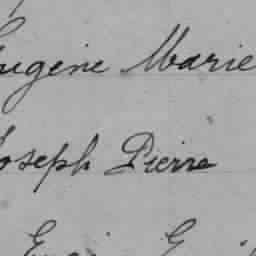 Eugène Marie
Joseph Pierre